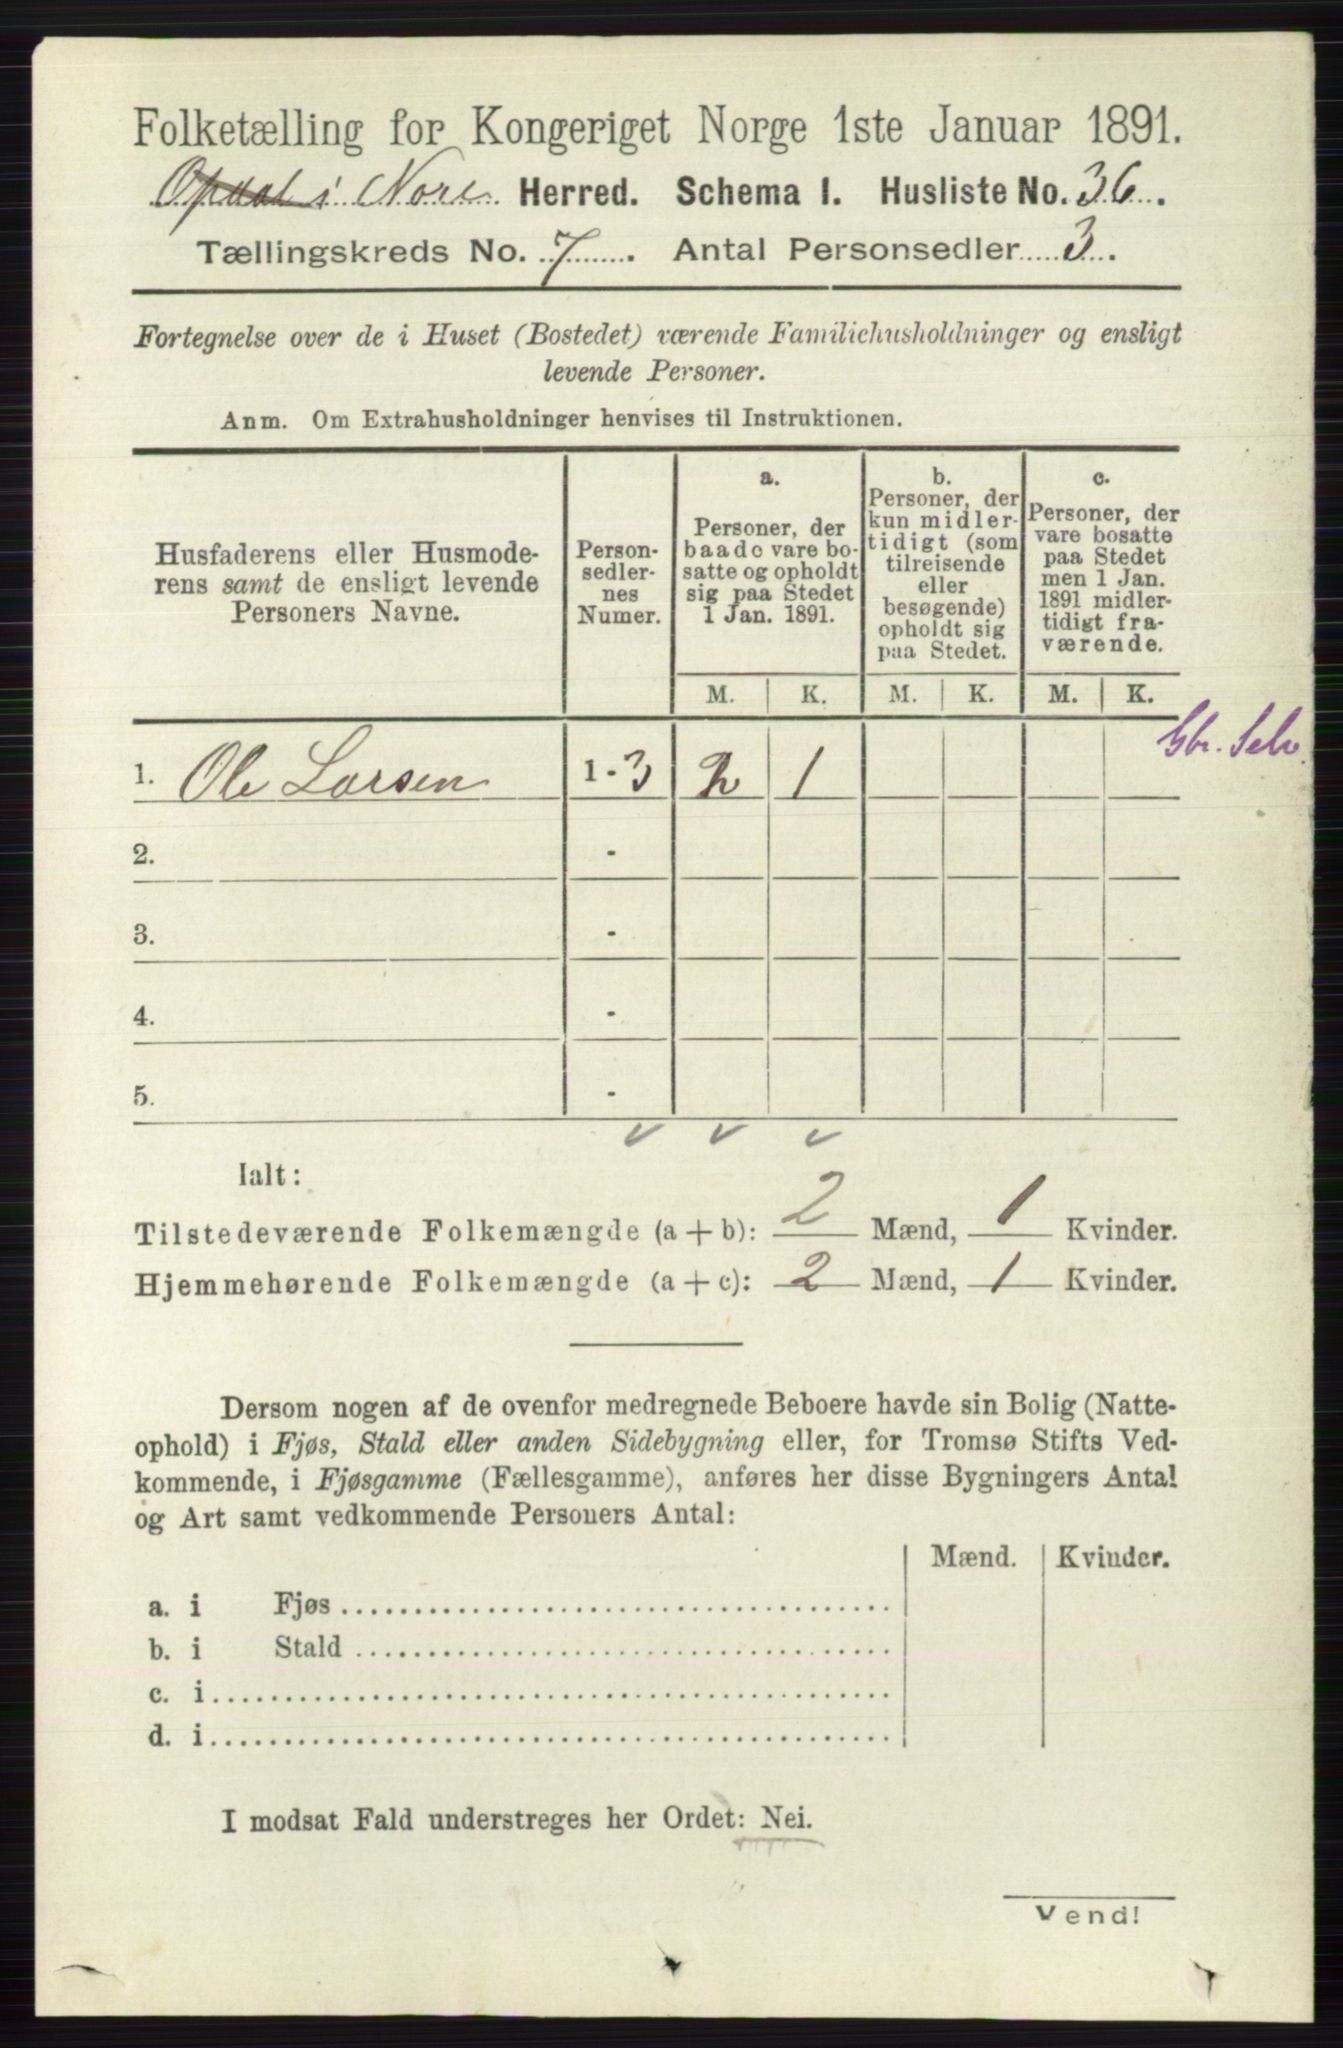 Folketælling for Kongeriget Norge 1ste Januar 1891.
Opdal i Nore Herred. Schema I. Husliste No. 36.
Tællingskreds No. 7. Antal Personsedler 3.
Fortegnelse over de i Huset (Bostedet) værende Familiehusholdninger og ensligt
levende Personer.
Anm. Om Extrahusholdninger henvises til Instruktionen.
Husfaderens eller Husmode-
rens samt de ensligt levende
Personers Navne.
Person-
sedler-
nes
Numer.
a.
Personer, der
baade vare bo-
satte og opholdt
sig paa Stedet
1 Jan. 1891.
b.
Personer, der
kun midler-
tidigt (som
tilreisende
eller
besøgende)
opholdt sig
paa Stedet.
c.
Personer, der
vare bosatte
paa Stedet
men 1 Jan.
1891 midler-
tidigt fra-
værende.
M. K. M. K. M. K.
1. Ole Larsen 1 - 3 2 1
2. -
3. -
4. -
5. -
Ialt:
Tilstedeværende Folkemængde (a + b): 2 Mænd, 1 Kvinder.
Hjemmehørende Folkemængde (a + c): 2 Mænd, 1 Kvinder.
Dersom nogen af de ovenfor medregnede Beboere havde sin Bolig (Natte-
ophold) i Fjøs, Stald eller anden Sidebygning eller, for Tromsø Stifts Ved-
kommende, i Fjøsgamme (Fællesgamme), anføres her disse Bygningers Antal
og Art samt vedkommende Personers Antal:
Mænd. Kvinder.
a. i Fjøs
b. i Stald
c. i
d. i
I modsat Fald understreges her Ordet: Nei.
Vend!